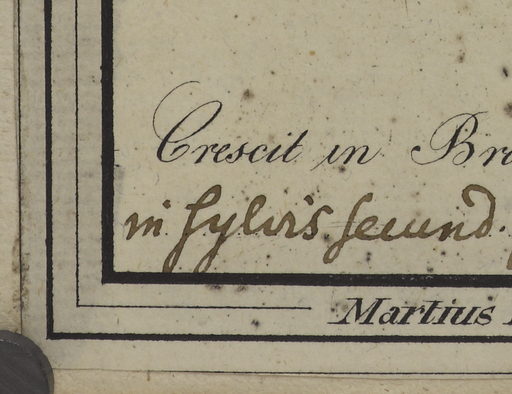 Crescit in Bra
in sylvis secund.
Martius